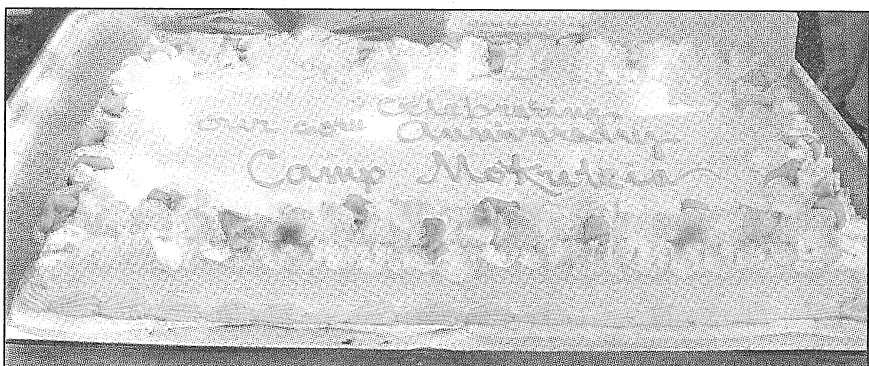 Celebrating
our 60th Anniversary
Camp